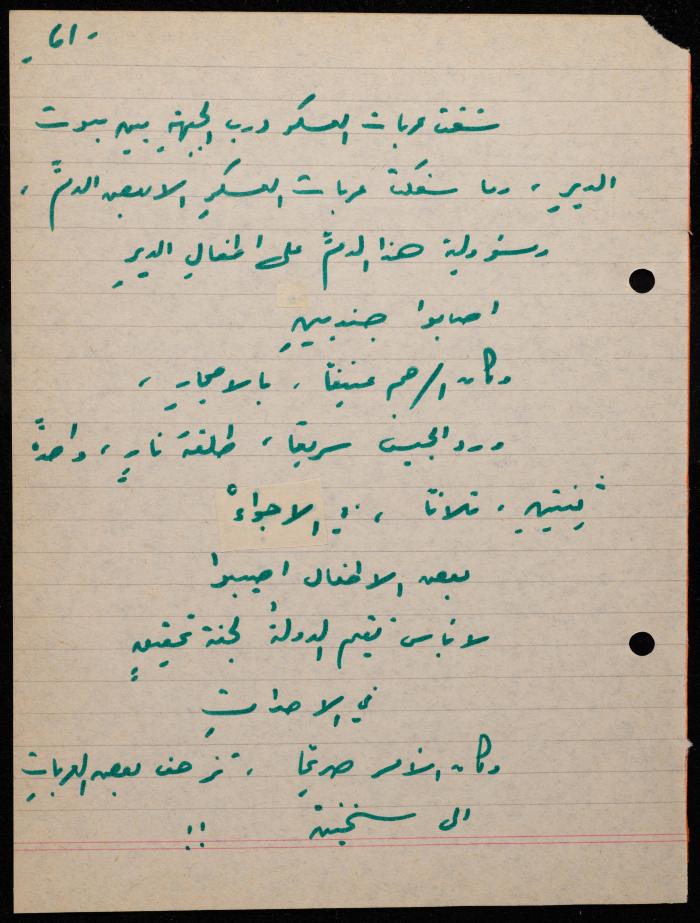 - ١٦ -
شقت عربات العسكر درب الجبهةِ بين بيوت
الديرِ ، وما سفكت عربات العسكرِ الا بعض الدمِّ ،
ومسؤولية هذا الدمِّ على اطفالِ الديرِ
اصابوا جنديينِ
وكان الرجم عنيفًا ، بالاحجارِ ،
ورد الجيش سريعًا ، طلقةَ نارٍ ، واحدةً
ثنتينِ ، ثلاثًا ، في الاجواءْ
بعض الاطفال اصيبوا
لا بأس تقيم الدولةُ لجنة تحقيقٍ
في الاحداثِ
وكان الأمر صريحًا ، تزحف بعض العرباتِ
الى سخنين !!